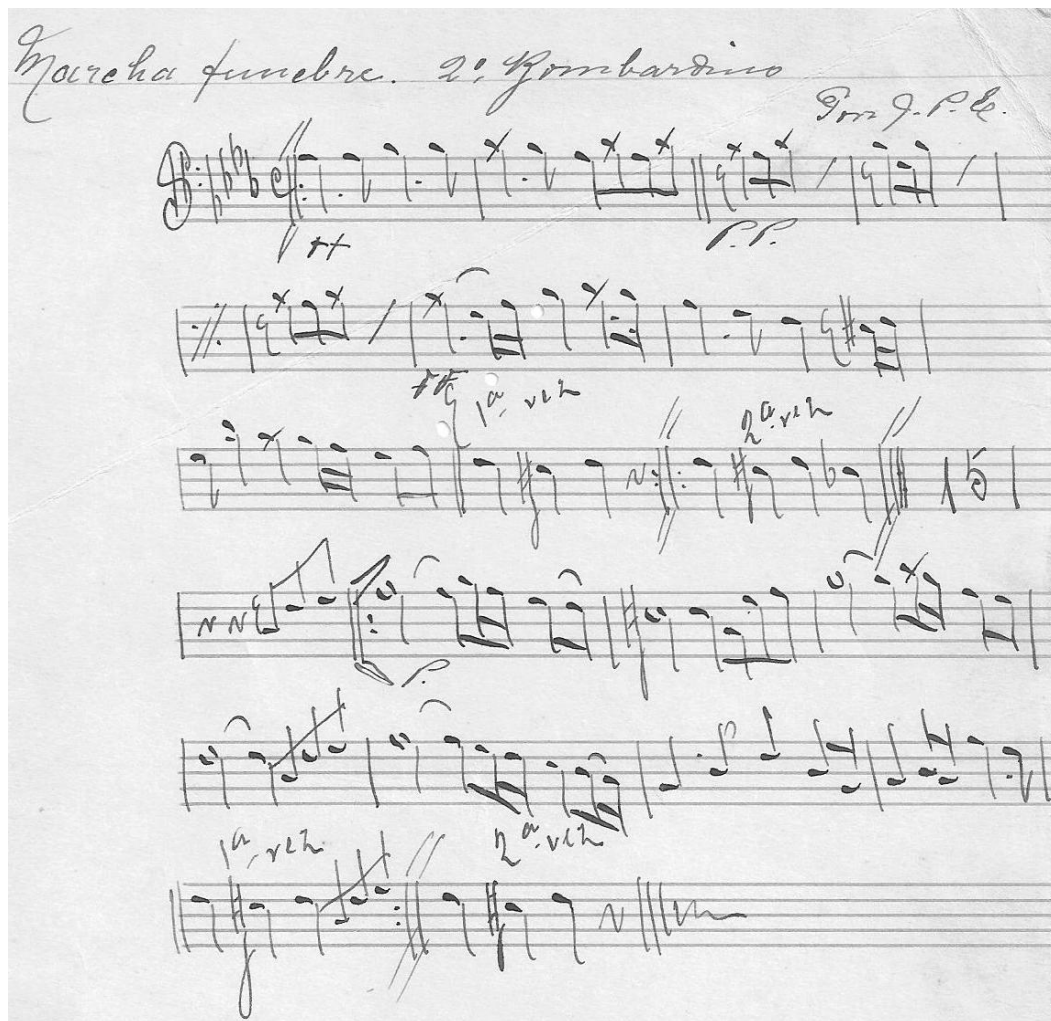 Marcha funebre. 2º Bombardino
Por J. P. E.
ff
P.P.
ff
1ª vez 2ª vez
15
P.
1ª vez 2ª vez